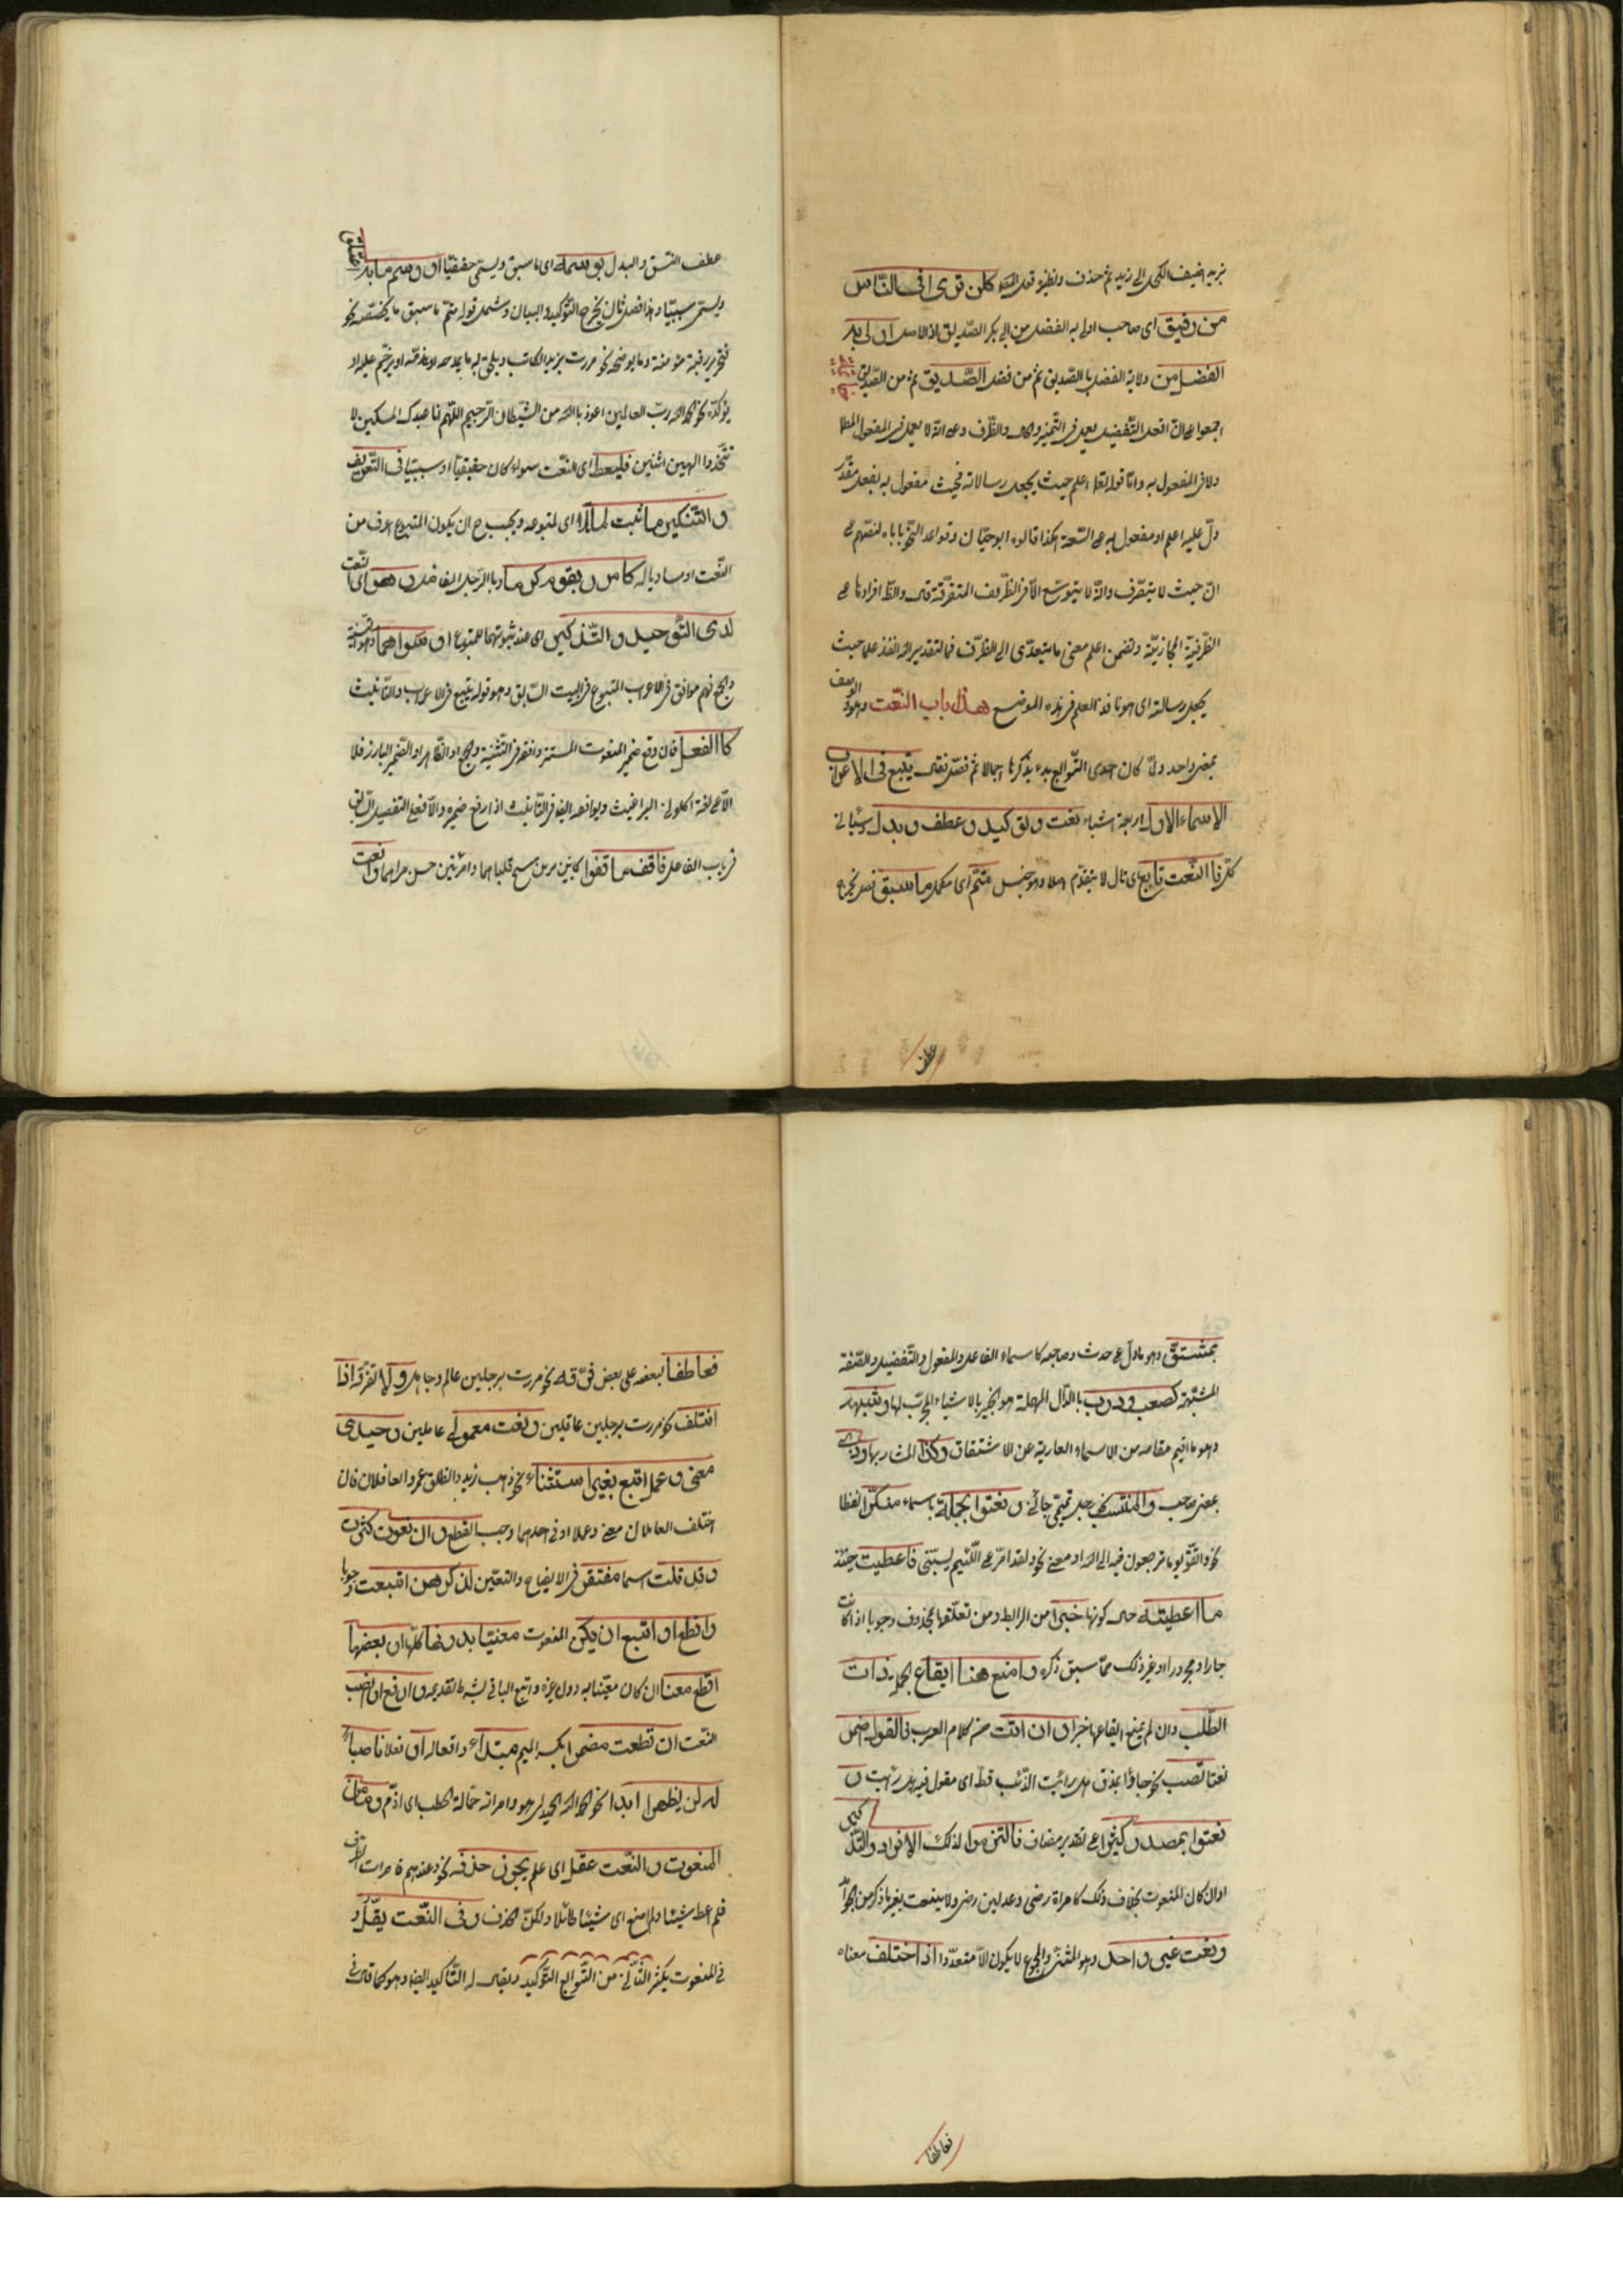 بزيد اضيف الكحل الى زيد ثم حذف ونظيره قول المصنف كلن ترى فى الناس
من رفيق اى صاحب اولى به الفضل من ابى بكر الصديق اذ الاصل اولى به
الفضل من ولاية الفضل بالصديق ثم من فضل الصديق ثم من الصديق
اجمعوا على ان افعل التفضيل يعمل فى التميز والحال والظرف وعلى انه لا يعمل فى المفعول المطلق
ولا فى المفعول به واما قوله تعالى اعلم حيث يجعل رسالاته فحيث مفعول به بفعل مقدر
دل عليه اعلم او مفعول به على السعة هكذا قالوه ابو حيان وقواعد النحو تاباه لنصهم على
ان حيث لا يتصرف وانه لا يتوسع الا فى الظروف المتصرفة قال والظاهر اقرارها على
الظرفية المجازية وتضمن اعلم معنى ما يتعدى الى الظرف فالتقدير الله انفذ علما حيث
يجعل رسالته اى هو نافذ العلم فى هذه الموضع هذا باب النعت وهو والوصف
بمعنى واحد ولما كان احدى التوابع بدء بذكرها اجمالا ثم فصل فقال يتبع فى الاعراب
الاسماء الاول اربعة اشياء نعت وتوكيد وعطف وبدل وسياتى
كل فالنعت تابع اى تال لا يتقدم اصلا وهو جنس متم اى مكمل ما سبق فصل يخرج
عطف
عطف النسق والبدل بوسمه اى ما سبق ويسمى حقيقيا او وسم ما به اعتلق
ويسمى سببيا وهذا فصل ثان يخرج التوكيد والبيان وشمل قوله متم ما سبق ما يخصصه نحو
فتحرير رقبة مؤمنة وما يوضحه نحو مررت بزيد الكاتب ويلحق به ما يمدحه او يذمه او يرحم عليه او
يؤكده نحو الحمد لله رب العالمين اعوذ بالله من الشيطان الرجيم اللهم انا عبدك المسكين لا
تتخذوا الهين اثنين فليعط اى النعت سواء كان حقيقيا او سببيا فى التعريف
والتنكير ما ثبت لما تلا اى لمتبوعه ويجب ح ان يكون المتبوع اعرف من
النعت او مساويا له كامرر بقوم كرما وبالرجل الفاضل وهو اى النعت
لدى التوحيد والتذكير اى عند ثبوتهما للمتبوع او سواهما وهو التثنية
والجمع فهم موافق فى الاعراب المتبوع فى البيت السابق وهو قوله يتبع فى الاعراب والتانيث
كالفعل فان رفع ضمير المنعوت المستتر وافقه فى التثنية والجمع او الظاهر او الضمير البارز فلا
الا على لغة اكلونى البراغيث ويوافقه ايضا فى التانيث اذا رفع ضميره والا فعلى التفصيل السابق
فى باب الفاعل فاقف ما قفوا كابنين مر بن شج قلباهما وامرئين حسن مراهما وانعت
بمشتق وهو ما دل على حدث وصاحبه كاسماء الفاعل والمفعول والتفضيل والصفة
المشبهة كصعب ودرب بالدال المهملة وهو الخبير بالاشياء المجرب لها وشبهه
وهو ما اقيم مقامه من الاسماء العارية عن الاشتقاق وكذا المشار بها وذى
بمعنى صاحب والمنتسب نحو رجل تميمى جائنى ونعتوا بجملة باسماء منكرا لفظا
نحو واتقوا يوما ترجعون فيه الى الله او معنى نحو ولقد امر على اللئيم يسبنى فاعطيت حينئذ
ما اعطيته حال كونها خبرا من الرابط ومن تعلقها بمحذوف وجوبا اذا كانت
جارا ومجرورا او غير ذلك مما سبق ذكره وامنع هنا ايقاع الجملة ذات
الطلب وان لم يمتنع ايقاعها خبرا وان اتت من كلام العرب فالقول اضمر
نعتا تصب نحو جاؤا بمذق هل رايت الذئب قط اى مقول فيه هل رايت و
نعتوا بمصدر كثيرا على تقدير مضاف فالتزموا لذلك الافراد والتذكيرا
وان كان المنعوت بخلاف ذلك كامراة رضى وعدلين رضى ولا ينعت بغير ما ذكر من الجوامد
ونعت غير واحد وهو المثنى والمجموع لا يكون الا متعددا اذا اختلف معناه
فعاطفا
فعاطفا بعضه على بعض فرقه نحو مررت برجلين عالم وجاهل ولا تفرقه اذا
ائتلف نحو مررت برجلين عاقلين ونعت معمولى عاملين وحيدى
معنى وعمل اتبع بغير استثناء نحو ذهب زيد وانطلق عمرو العاقلان فان
اختلف العاملان معنى وعملا او فى احدهما وجب القطع وان نعوت كثرت
وقد تلت اسما مفتقرا فى الايضاح والتعيين لذكرهن اتبعت وجوبا
واقطع او اتبع ان يكن المنعوت معينا بدونها كلها او بعضها
اقطع معلنا ان كان معينا به دون غيره واتبع الباقى بشرط تقديمه وارفع او انصب
النعت ان قطعت مضمرا بكسر الميم مبتداء وافعاله او فعلا ناصبا
له لن يظهرا ابدا نحو الحمد لله الحميد اى هو وامراته حمالة الحطب اى اذم وما من
المنعوت والنعت عقل اى علم يجوز حذفه نحو وعندهم قاصرات الطرف
فلم اعط شيئا ولم امنع اى شيئا طائلا ولكن الحذف وفى النعت يقل و
فى المنعوت يكثر الثانى من التوابع التوكيد ويقال له التاكيد ايضا وهو كما قال فى